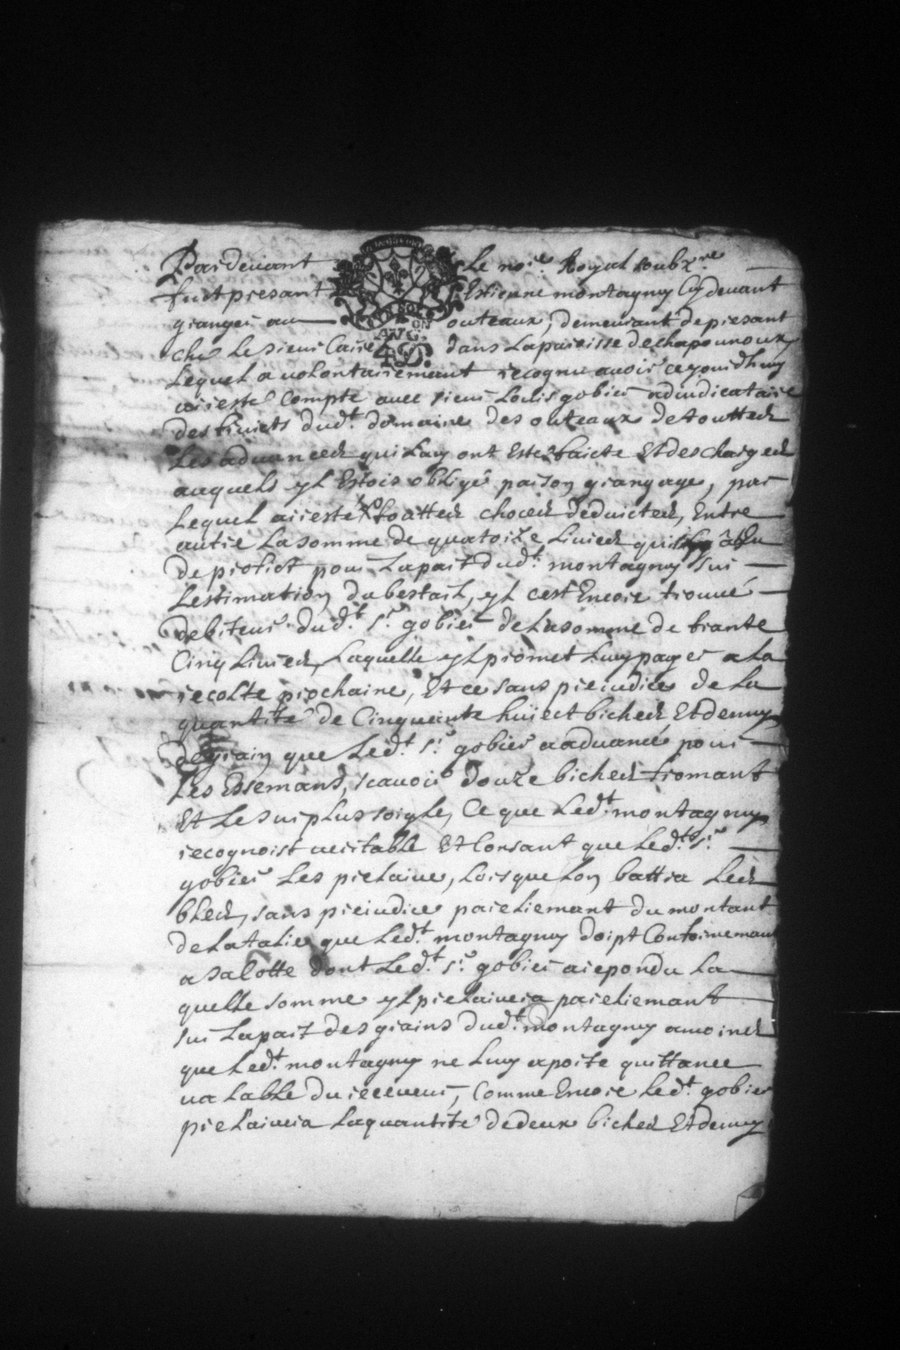 Pardevant Le no.re Royal soubz.ne
fust presant Estienne montagny Cy devant
granger au outeaux, demeurant de presant
ches Le sieur Caire dans La paroisse de chaponnoux
GEN DE LYON
AVG.
4.S.D.
Lequel a volontairemant recognu avoir ce jourdhuy
arresté Compte avec sieur Louis gobier adiudicataire
des fruiets dud.t domaine des outeaux de touttes
Les advances qui Luy ont esté faicte Et des charges
auquels yl Estois obligé par son grangage, par
Lequel arresté touttes choses deduictes, Entre
autre La somme de quatorze Livres qui
de profict pour La part dud.t montagny sur
Lestimation du bestail, yl cest Encore trouvé
debiteur dud.t s.r gobier de La somme de trante
Cinq Livres, Laquelle yl promet Luy payer a La
recolte prochaine, Et ce sans preiudice de La
quantité de Cinquante huict biches Et demy
de grain que Led.t s.r gobier a advancé pour
Les Essemans, scavoir douze biches fromant
Et Le surplus soigle, Ce que Led.t montagny
recognoist veritable Et Consant que Led.t s.r
gobier Les prelaive, Lors que Lon battra Les
bleds, sans preiudice pareliemant du montant
de La talie que Led.t montagny doipt Conforinemant
a sa Cotte dont Led.t s.r gobier a repondu La
quelle somme yl prelaivera pareliemant
sur La part des grains dud.t montagny a moines
que Led.t montagny ne Luy aporte quittance
valable du receveur, Comme Encore Led.t gobier
prelaivera La quantité de deux biches Et demy